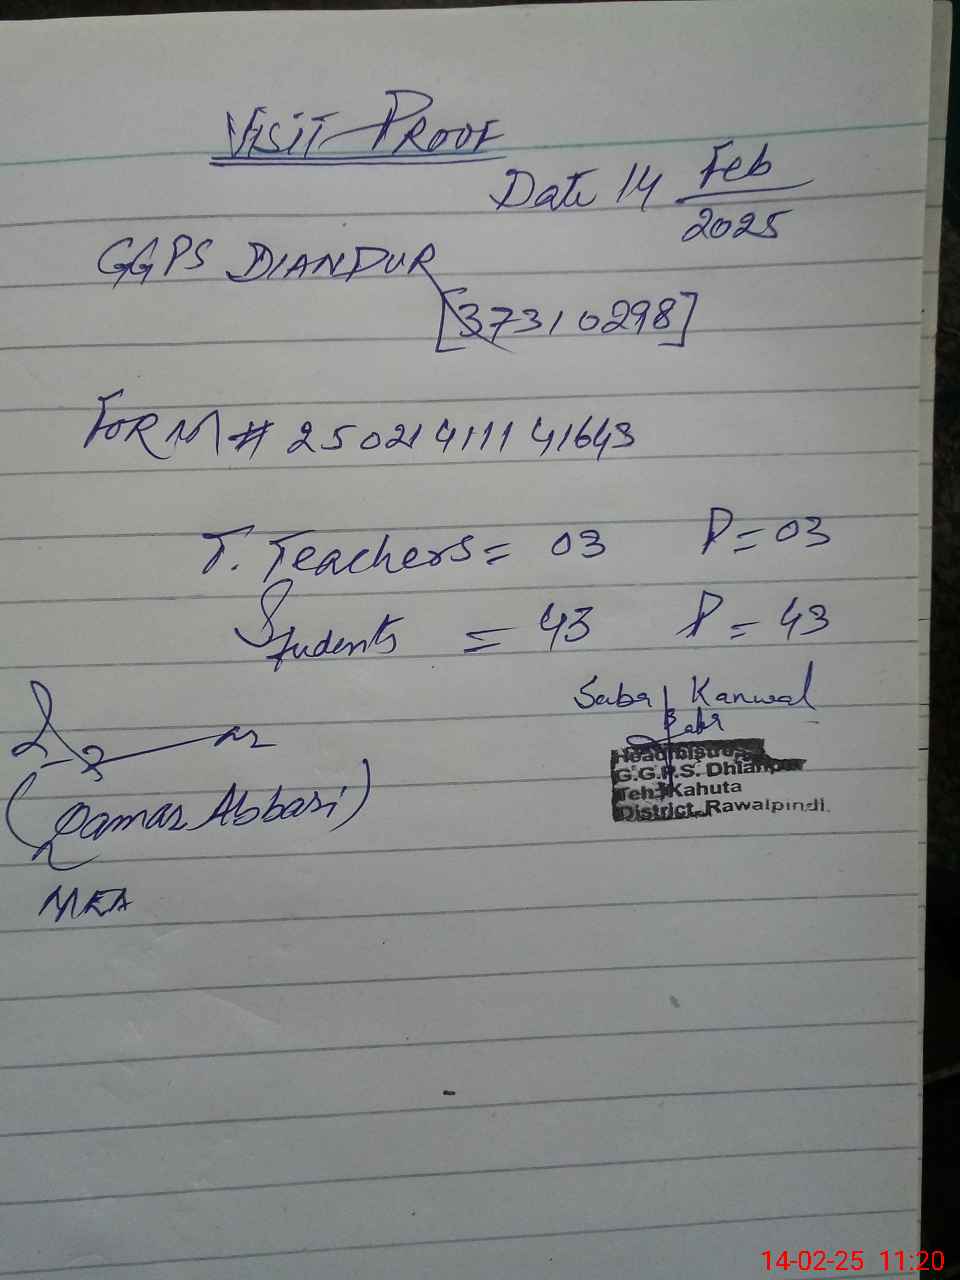 VISIT PROOF
Date 14 Feb 2025
GGPS DIANDUR
[37310298]
FORM # 250214111 41643
T. Teachers = 03 P = 03
Students = 43 P = 43
Saba Kanwal
Saba
Headmistress
G.G.P.S. Dhian
Teh: Kahuta
District. Rawalpindi.
(Qamar Abbasi)
MEA
14-02-25 11:20